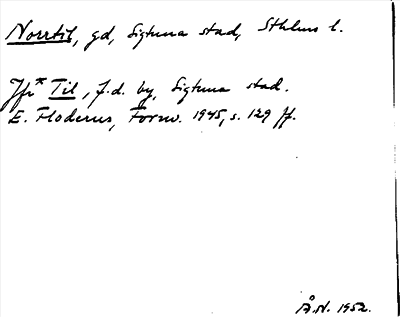 Norrtil, gd, Sigtuna stad, Sthlms l.
Jfr * Til, f.d. by, Sigtuna stad.
E. Floderus, Fornv. 1945, s. 129 ff.
Å.N. 1952.